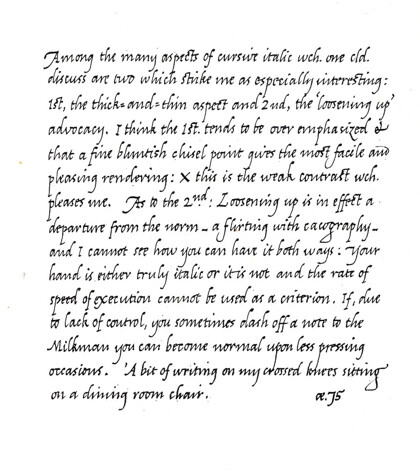 Among the many aspects of cursive italic wch. one cld.
discuss are two which strike me as especially interesting:
1st, the thick=and=thin aspect and 2nd, the 'loosening up'
advocacy. I think the 1st. tends to be over emphasized &
that a fine bluntish chisel point gives the most facile and
pleasing rendering: × this is the weak contrast wch.
pleases me. As to the 2nd: Loosening up is in effect a
departure from the norm – a flirting with cacography –
and I cannot see how you can have it both ways: Your
hand is either truly italic or it is not and the rate of
speed of execution cannot be used as a criterion. If, due
to lack of control, you sometimes dash off a note to the
Milkman you can become normal upon less pressing
occasions. 'A bit of writing on my crossed knees sitting
on a dining room chair. æ.75